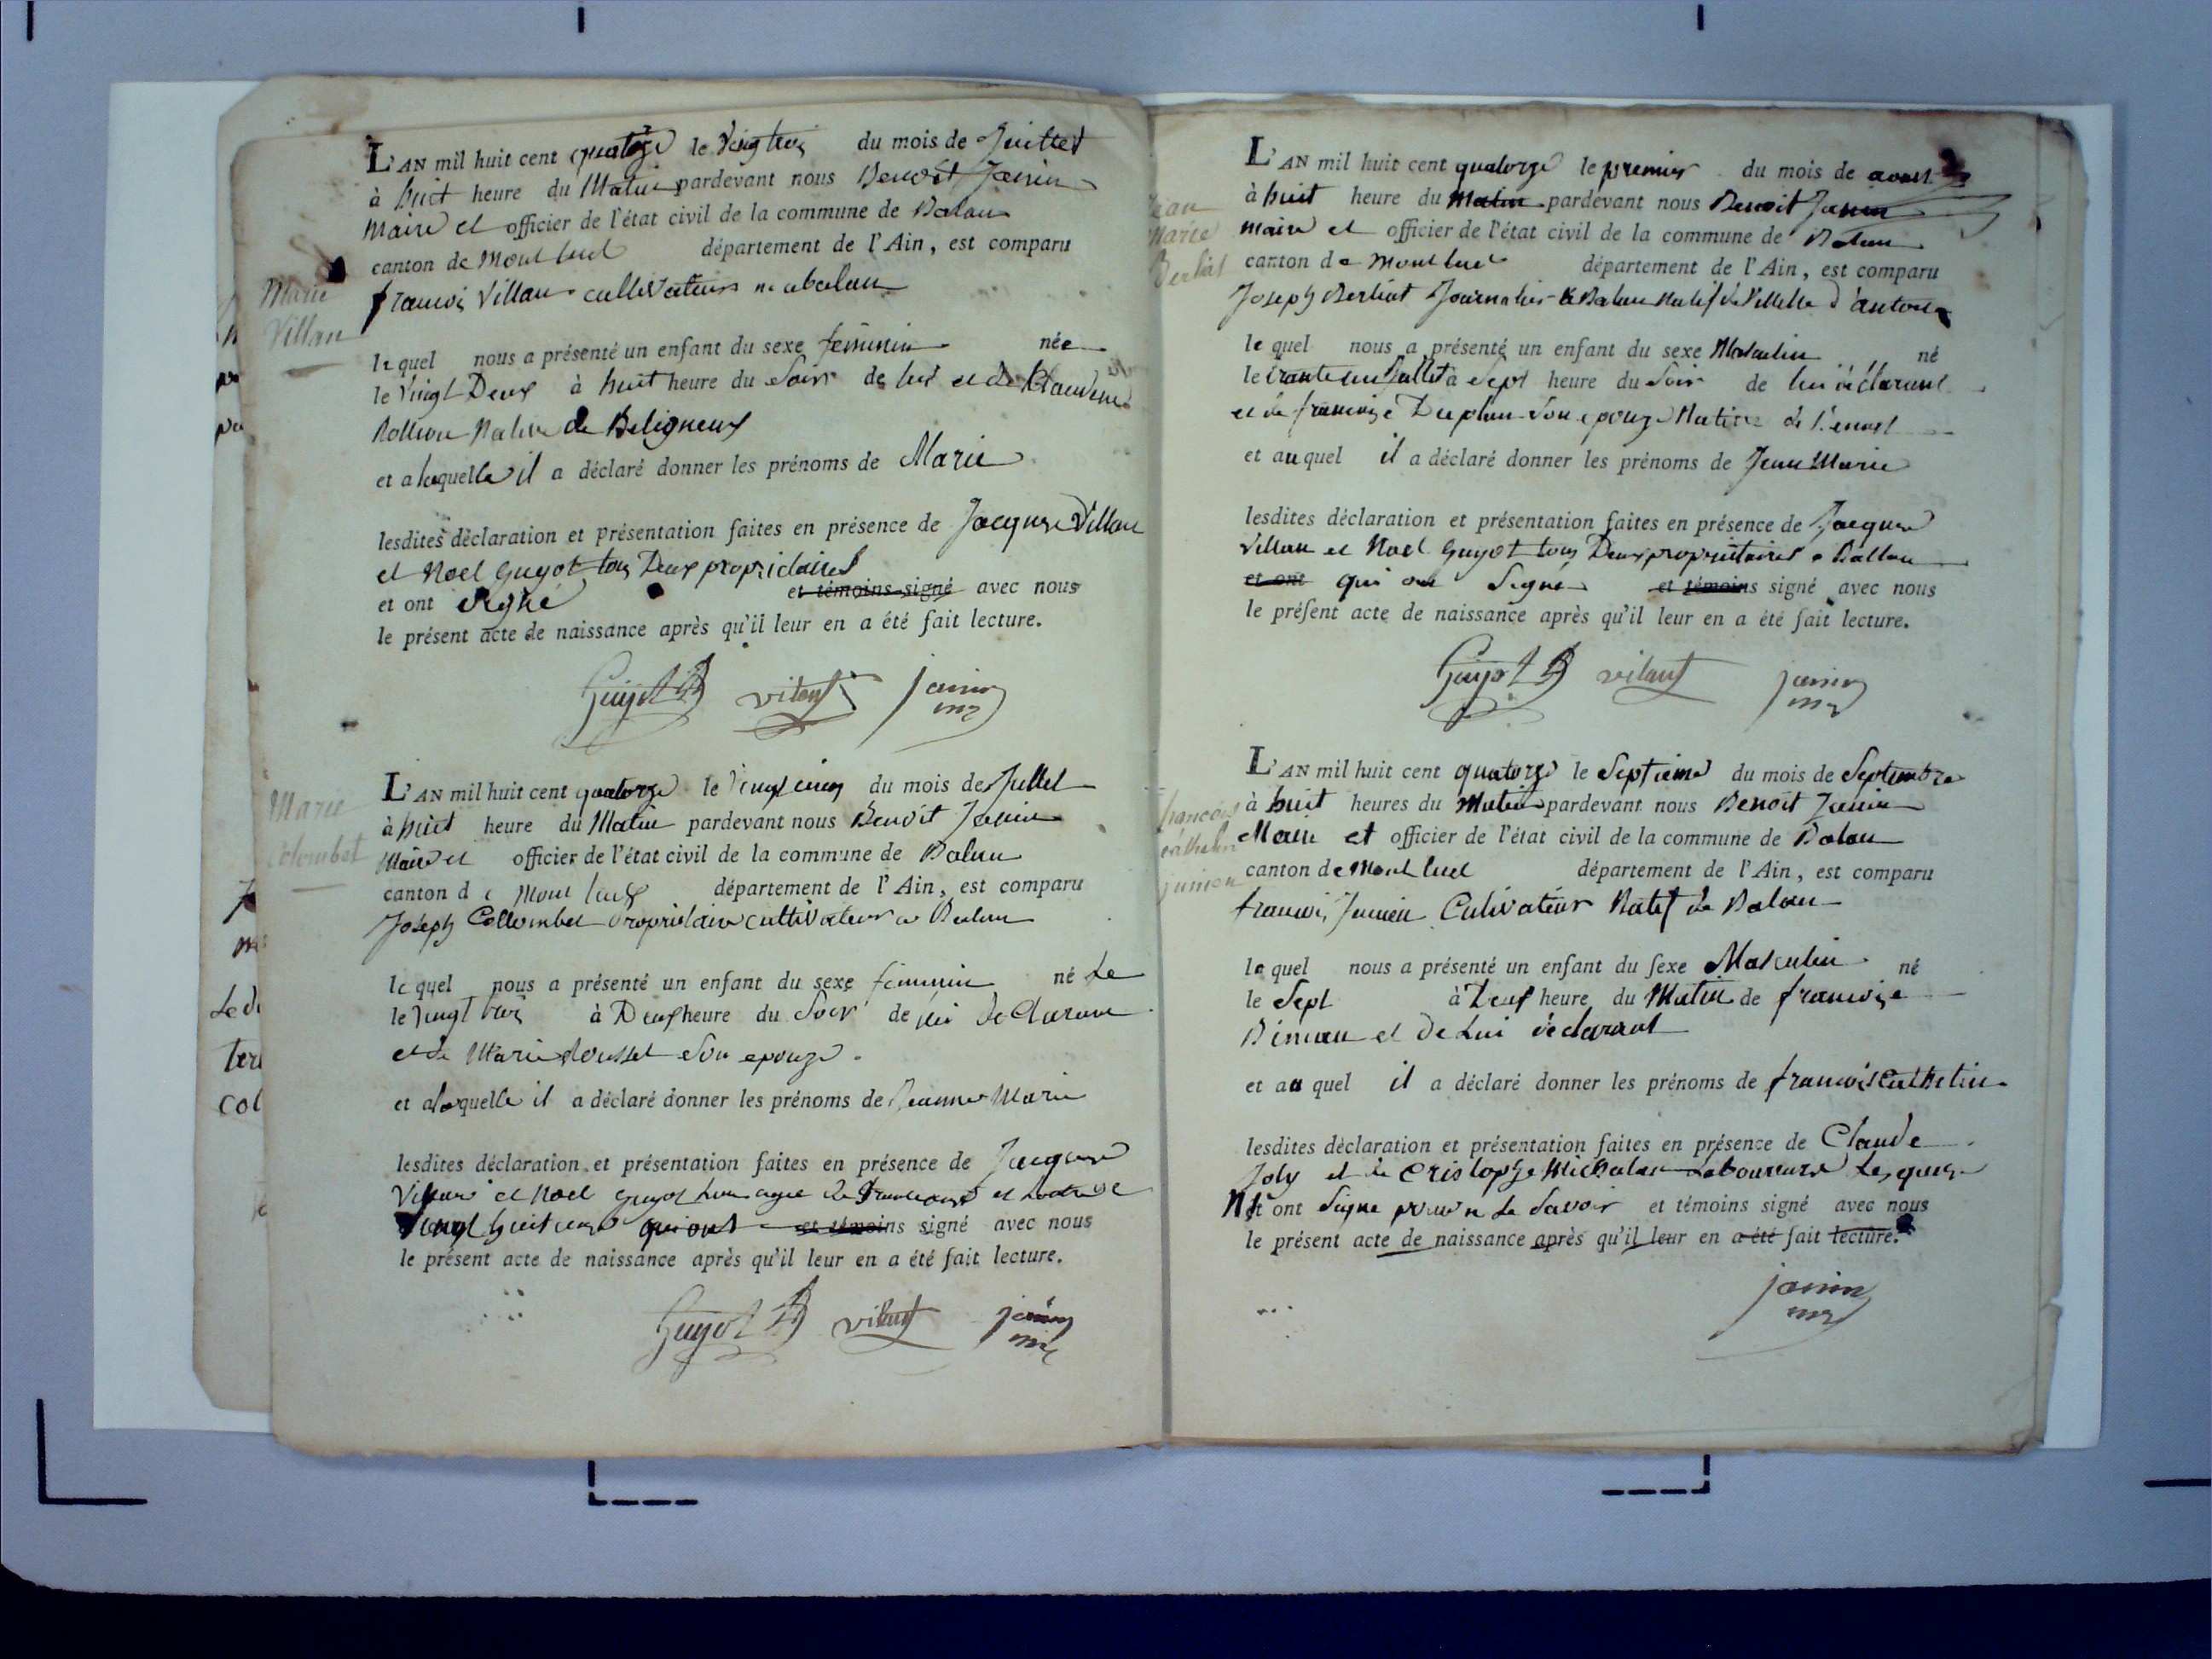 L'AN mil huit cent quatorze le vingt trois du mois de Juillet
à huit heure du Matin pardevant nous Benoit Janin
Maire et officier de l'état civil de la commune de Balan
canton de Mont luel département de l'Ain, est comparu
Marie
Villan
francois Villan cultivateur a balan
le quel nous a présenté un enfant du sexe feminin née
le Vingt Deux à huit heure du Soir de lui et de
Native de Beligneux
et a laquelle il a déclaré donner les prénoms de Marie
lesdites dèclaration et présentation faites en présence de Jacques Villan
et Noel Guyot tous Deux propriétaires
et ont Signé et témoins signé avec nous
le présent acte de naissance après qu'il leur en a été fait lecture.
Guyot vilant janin
L'AN mil huit cent quatorze le Vingt cinq du mois de Jullet
Marie
Colombet
à huit heure du Matin pardevant nous Benoit Janin
Maire et officier de l'état civil de la commune de Balan
canton de Mont luel département de l'Ain, est comparu
Joseph Collombet propriétaire cultivateur a Balan
le quel nous a présenté un enfant du sexe féminin né Le
le vingt trois à Deux heure du Soir de lui Declarant
et de Marie Rousset Son epouze.
et a laquelle il a déclaré donner les prénoms de Jeanne Marie
lesdites déclaration et présentation faites en présence de Jacques
et Noel Guyot
Vingt huit qui ont et témoins signé avec nous
le présent acte de naissance après qu'il leur en a été fait lecture.
Guyot vilant janin
L'AN mil huit cent quatorze le premier du mois de aoust
Jean
Marie
Berliat
à huit heure du Matin pardevant nous Benoit Janin
maire et officier de l'état civil de la commune de Balan
canton de Mont luel département de l'Ain, est comparu
Joseph Berliat Journalier a Balan Natif de Villette d'anton
le quel nous a présenté un enfant du sexe Masculin né
le trante un Jullet à Sept heure du Soir de lui déclarant
et de francoise Duplan Son epouze Native de
et au quel il a déclaré donner les prénoms de Jean Marie
lesdites déclaration et présentation faites en présence de Jacques
Villan et Noel Guyot tous Deux propriétaires a Ballan
et ont qui ont Signé et témoins signé avec nous
le présent acte de naissance après qu'il leur en a été fait lecture.
Guyot vilant janin
L'AN mil huit cent quatorze le Septieme du mois de Septembre
françois
cathelin
junien
à huit heures du Matin pardevant nous Benoit Janin
Maire et officier de l'état civil de la commune de Balan
canton de Mont luel département de l'Ain, est comparu
francois Junien Cultivateur Natif de Balan
le quel nous a présenté un enfant du sexe Masculin né
le Sept à Deux heure du Matin de francoise
et De Lui déclarant
et au quel il a déclaré donner les prénoms de francois Cathelin
lesdites déclaration et présentation faites en présence de Claude
Joly et de Cristophe Michalan Laboureurs Lesquels
Nt ont Signe pour ne le Savoir et témoins signé avec nous
le présent acte de naissance après qu'il leur en a été fait lecture.
janin